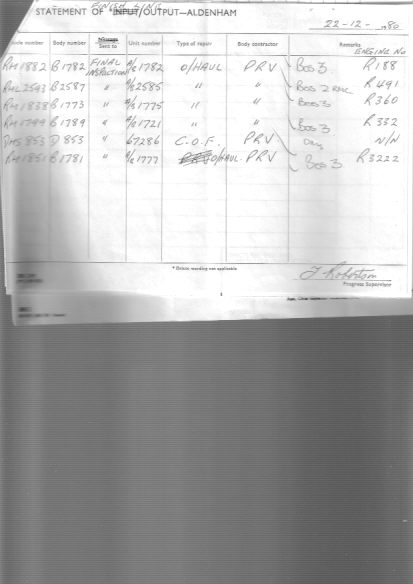 FINISH LINE
STATEMENT OF *INPUT/OUTPUT—ALDENHAM
22-12-1980
Code number Body number Sent to Unit number Type of repair Body contractor Remarks
ENGINE No
RM1882 B1782 FINAL INSPECTION A/S 1782 O/HAUL PRV BOS 3 R188
RML2593 B2587 " A/S 2585 " " BOS 2 R491
RM1838 B1773 " A/S 1775 " " BOS 3 R360
RM1799 B1789 " A/S 1721 " " BOS 3 R332
DMS 853 D 853 " 67286 C.O.F. PRV N/N
RM1851 B1781 " A/S 1777 O/HAUL PRV BOS 3 R3222
* Delete wording not applicable
J Robertson
Progress Supervisor